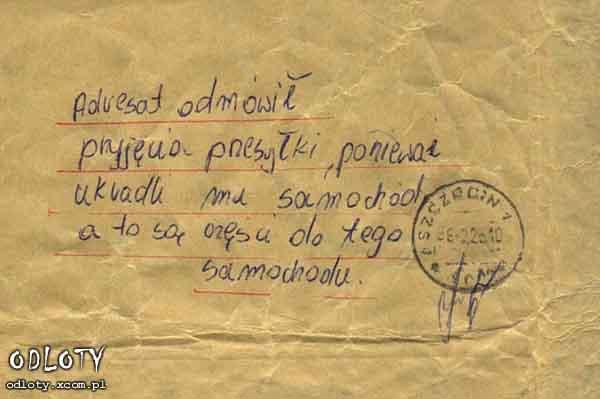 Adresat odmówił
przyjęcia przesyłki, ponieważ
ukradli mu samochód,
a to są części do tego
samochodu.
SZCZECIN 1
ODLOTY
odloty.xcom.pl